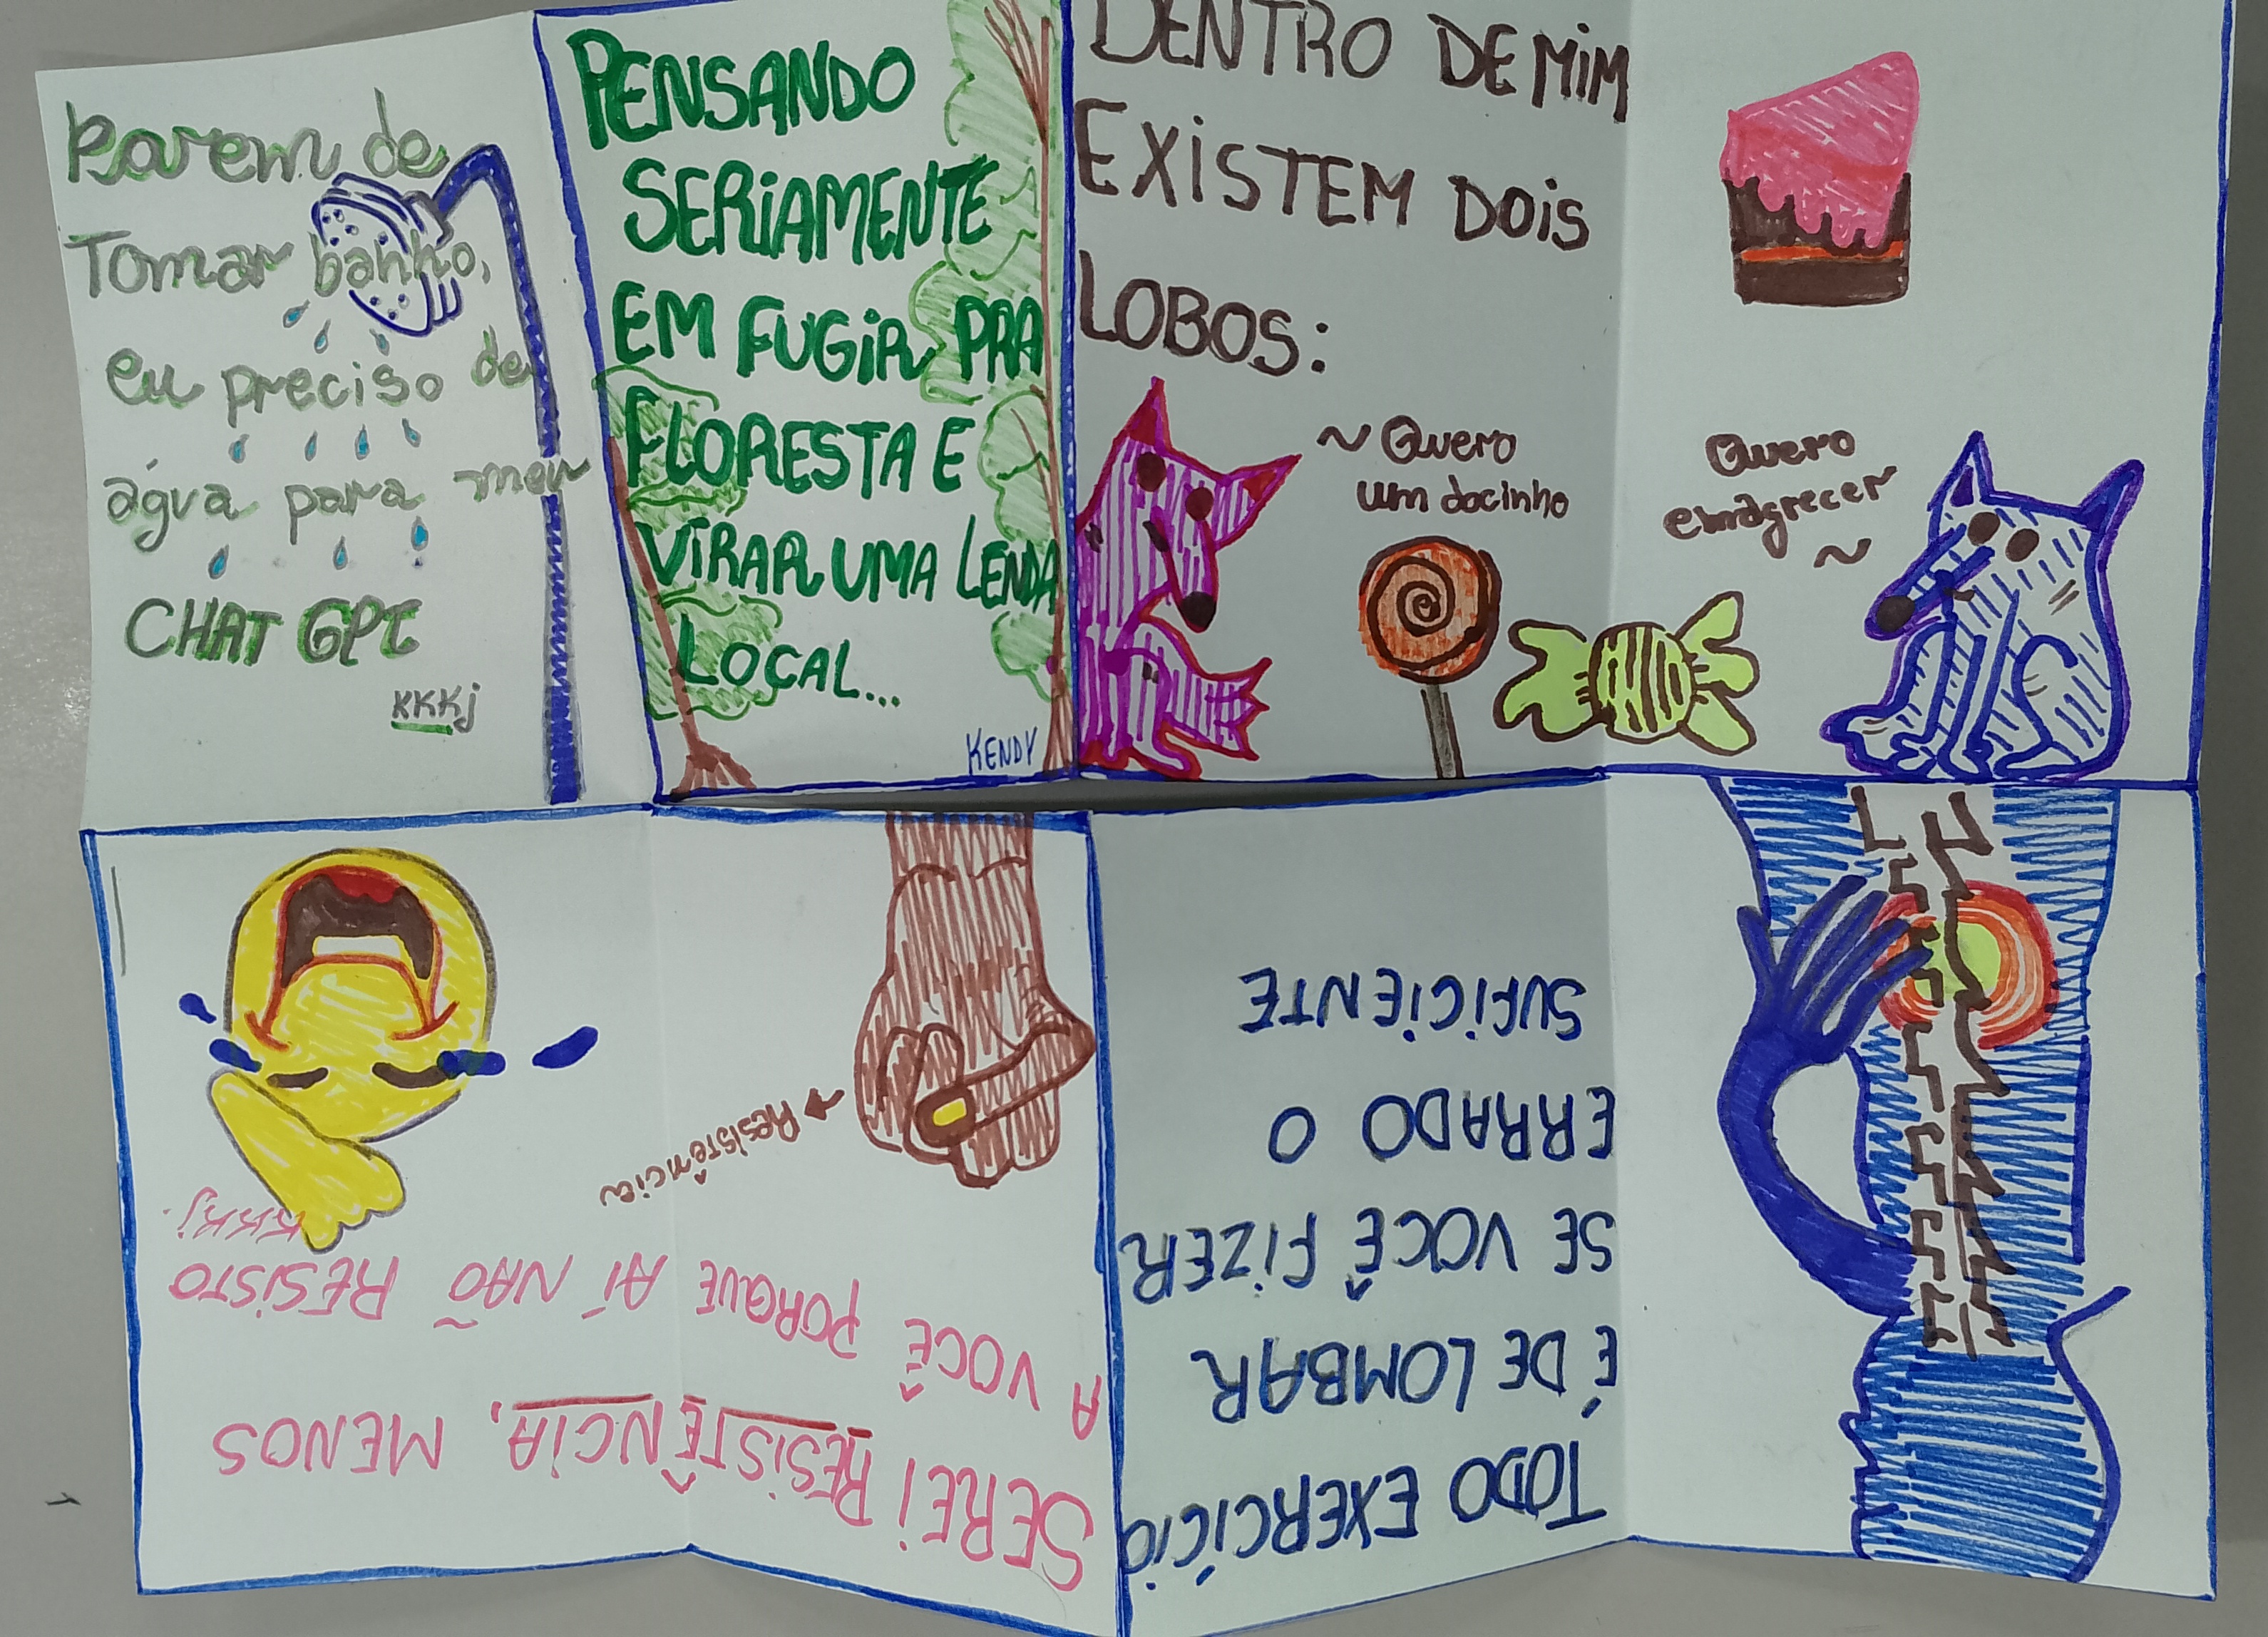 Parem de
Tomar banho,
eu preciso de
água para meu
CHAT GPT
KKKj
PENSANDO
SERIAMENTE
EM FUGIR PRA
FLORESTA E
VIRAR UMA LENDA
LOCAL...
KENDY
DENTRO DE MIM
EXISTEM DOIS
LOBOS:
~ Quero
um docinho
Quero
emagrecer
~
TODO EXERCÍCIO
É DE LOMBAR
SE VOCÊ FIZER
ERRADO O
SUFICIENTE
SEREI RESISTÊNCIA, MENOS
A VOCÊ PORQUE AÍ NÃO RESISTO
KKKj.
Resistência